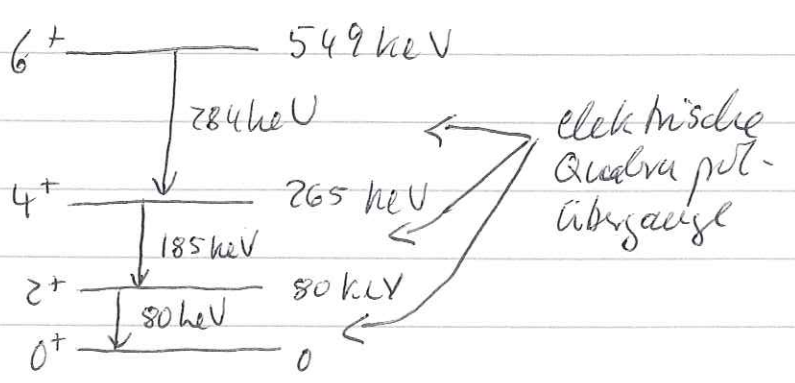 6+ 549 keV
284 keV
elektrische
Quadrupol-
übergänge
4+ 265 keV
185 keV
2+ 80 keV
80 keV
0+ 0